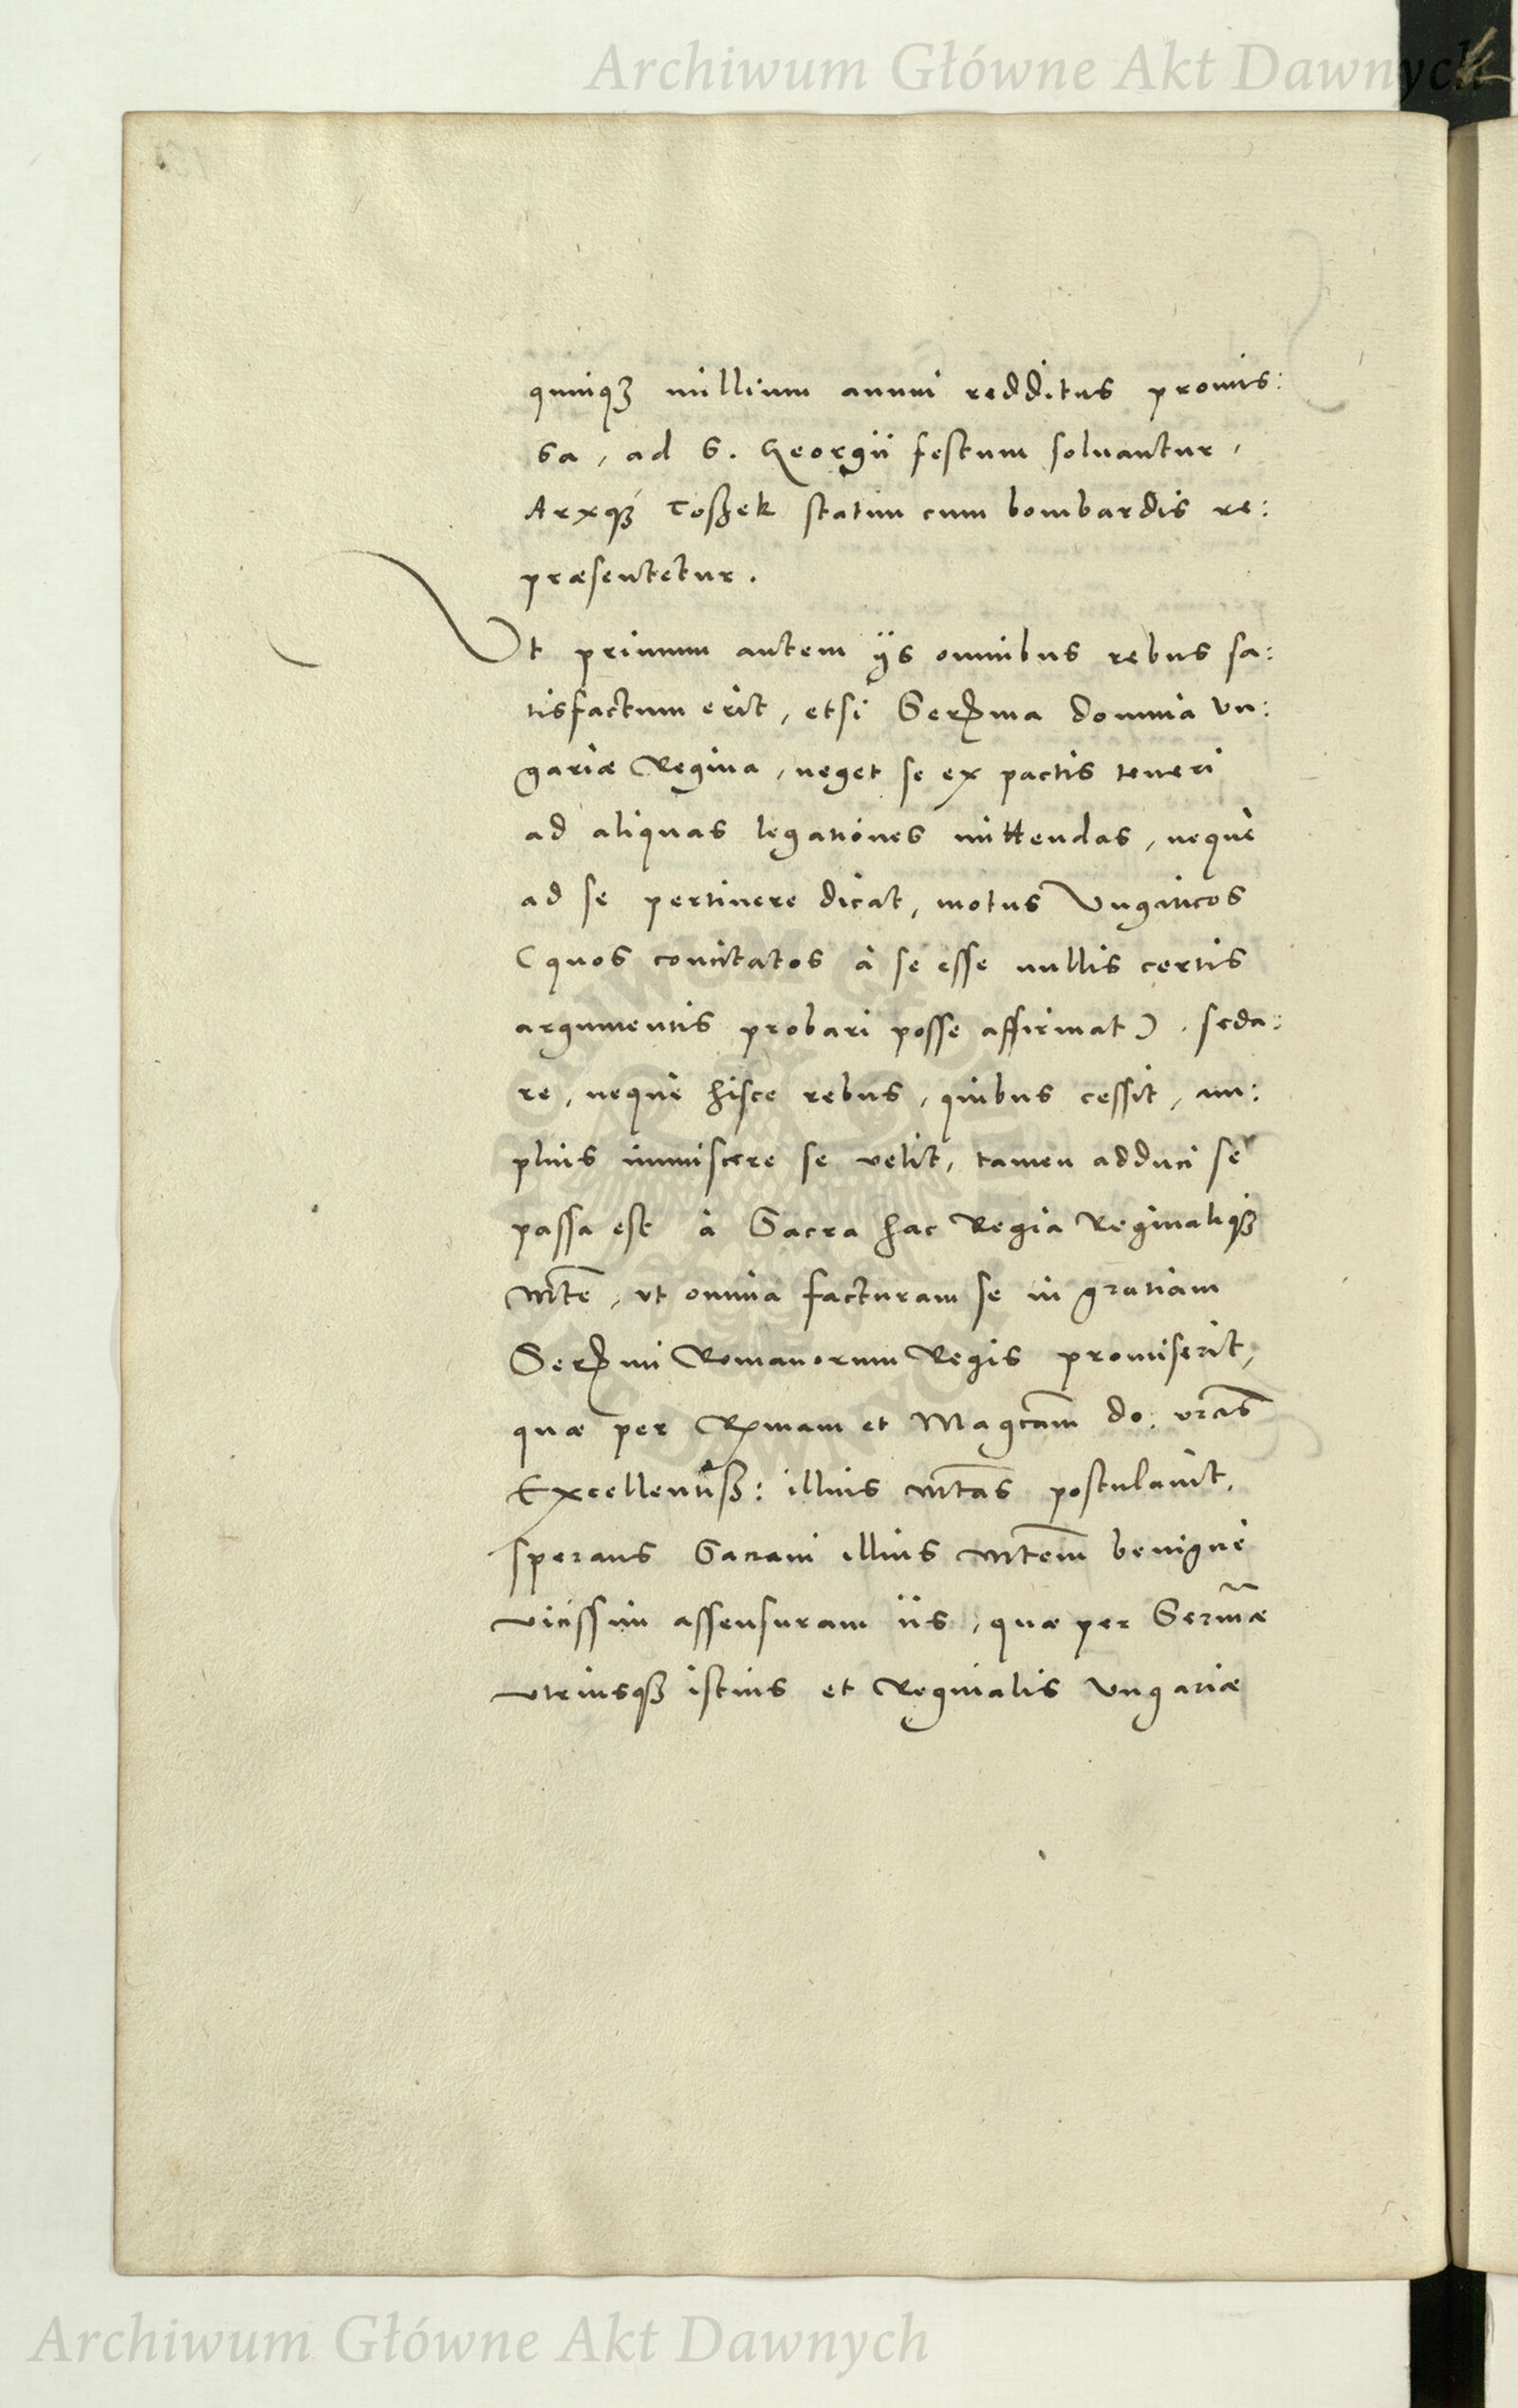 Archiwum Główne Akt Dawnych
quinqꝫ millium annui redditus promis:
sa, ad S. Georgii festum soluantur,
Arxqꝫ Toßek statim cum bombardis re:
præsentetur.
Vt primum autem ijs omnibus rebus sa:
tisfactum erit, etsi Serma domina Vn:
gariæ Regina, neget se ex pactis teneri
ad aliquas legationes mittendas, neque
ad se pertinere dicat, motus Vngaricos
(quos concitatos à se esse nullis certis
argumentis probari posse affirmat). seda:
re, neque hisce rebus, quibus cessit, am:
plius immiscere se velit, tamen adduci se
passa est à Sacra hac Regia Reginaliqꝫ
Mte, vt omnia facturam se in gratiam
Sermi Romanorum Regis promiserit,
quæ per Rmam et Magcam do. vras
Excellentiß: illius Mtas postulauit,
sperans Sacram illius Mtem benigne
vicissim assensuram iis, quæ per Sermæ
vtriusqꝫ istius et Reginalis Vngariæ
Archiwum Główne Akt Dawnych